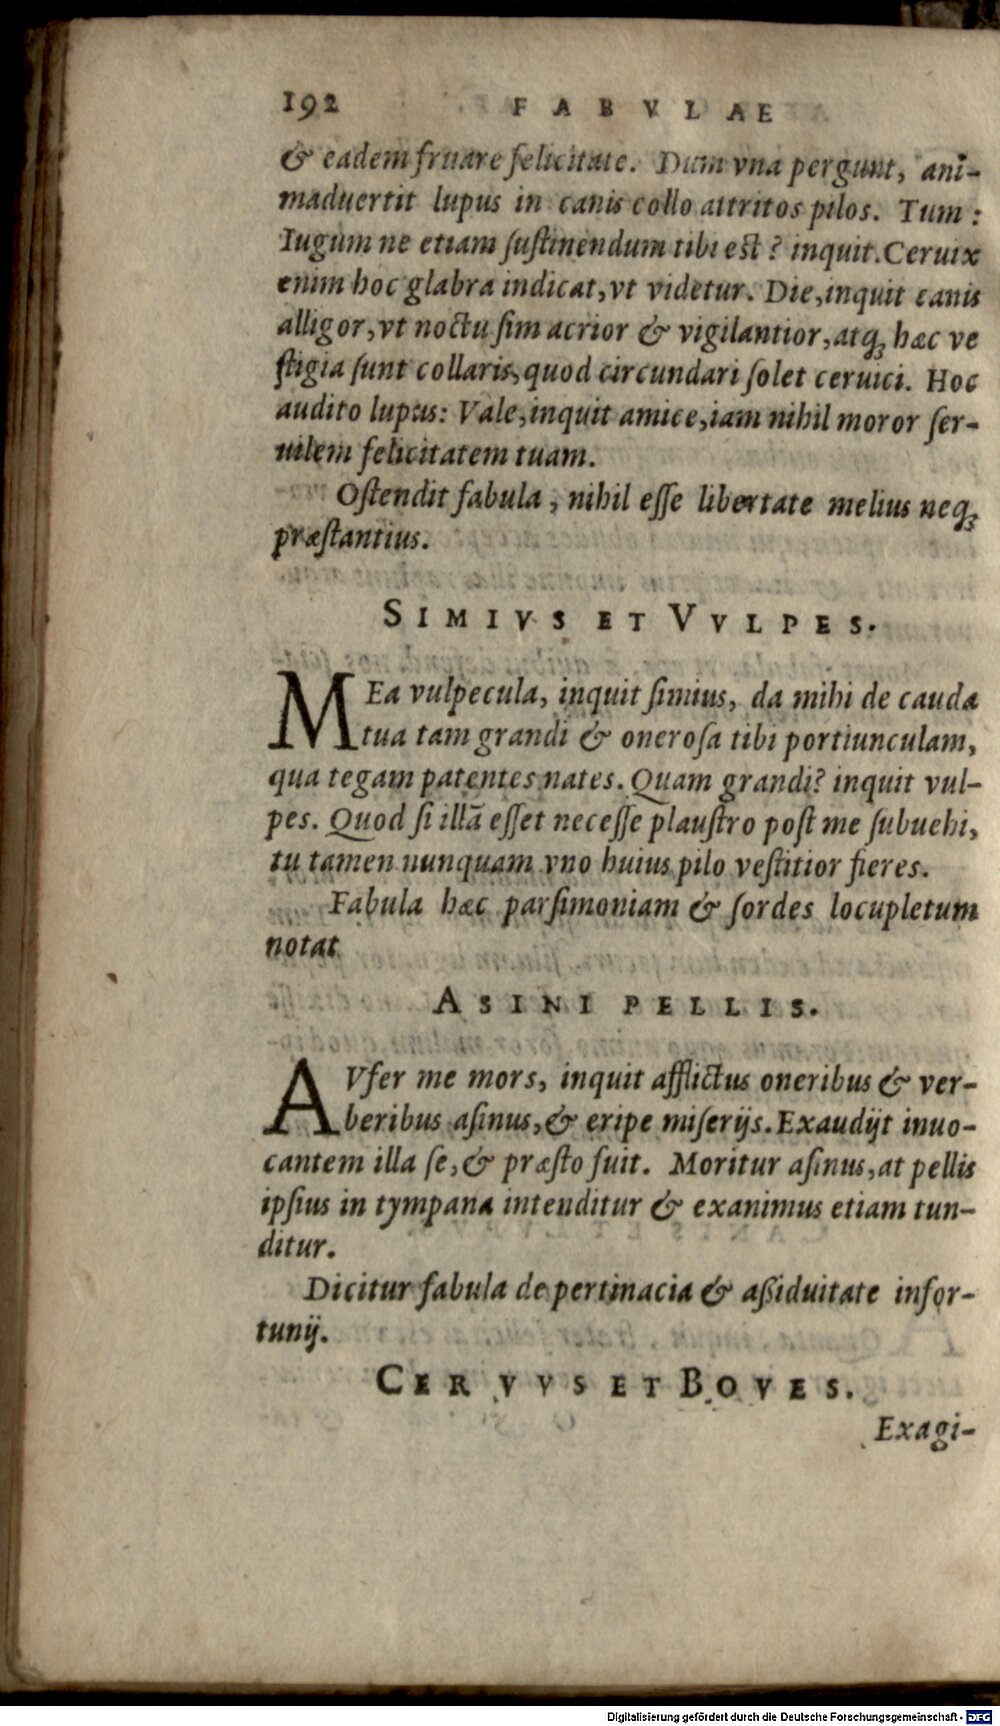 192 FABVLAE
& eadem fruare felicitate. Dum vna pergunt, ani-
maduertit lupus in canis collo attritos pilos. Tum :
Iugum ne etiam ſuſtinendum tibi eſt? inquit. Ceruix
enim hoc glabra indicat, vt videtur. Die, inquit canis
alligor, vt noctu ſim acrior & vigilantior, atq; hæc ve
ſtigia ſunt collaris, quod circundari ſolet ceruici. Hoc
audito lupus: Vale, inquit amice, iam nihil moror ſer-
uilem felicitatem tuam.
Oſtendit fabula, nihil eſſe libertate melius neq;
præſtantius.
SIMIVS ET VVLPES.
MEa vulpecula, inquit ſimius, da mihi de cauda
tua tam grandi & oneroſa tibi portiunculam,
qua tegam patentes nates. Quam grandi? inquit vul-
pes. Quod ſi illā eſſet neceſſe plauſtro poſt me ſubuehi,
tu tamen nunquam vno huius pilo veſtitior fieres.
Fabula hæc parſimoniam & ſordes locupletum
notat
ASINI PELLIS.
AVfer me mors, inquit afflictus oneribus & ver-
beribus aſinus, & eripe miſerijs. Exaudijt inuo-
cantem illa ſe, & præſto fuit. Moritur aſinus, at pellis
ipſius in tympana intenditur & exanimus etiam tun-
ditur.
Dicitur fabula de pertinacia & aßiduitate infor-
tunij.
CERVVS ET BOVES.
Exagi-
Digitalisierung gefördert durch die Deutsche Forschungsgemeinschaft - DFG